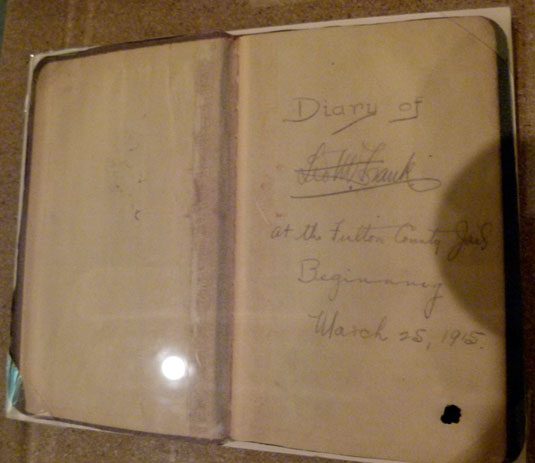 Diary of
Leo M. Frank
at the Fulton County Jail
Beginning
March 25, 1915.